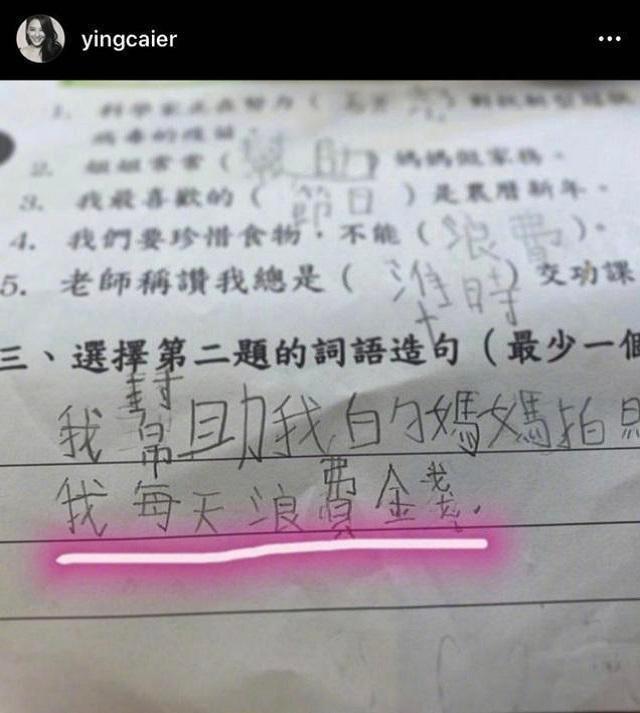 yingcaier
1. 科學家正在努力（
病毒的疫苗。
2. 姐姐常常（幫助）媽媽做家務。
3. 我最喜歡的（節日）是農曆新年。
4. 我們要珍惜食物，不能（浪費）。
5. 老師稱讚我總是（準時）交功課
三、選擇第二題的詞語造句（最少一個
我幫助我的媽媽拍
我每天浪費金錢.